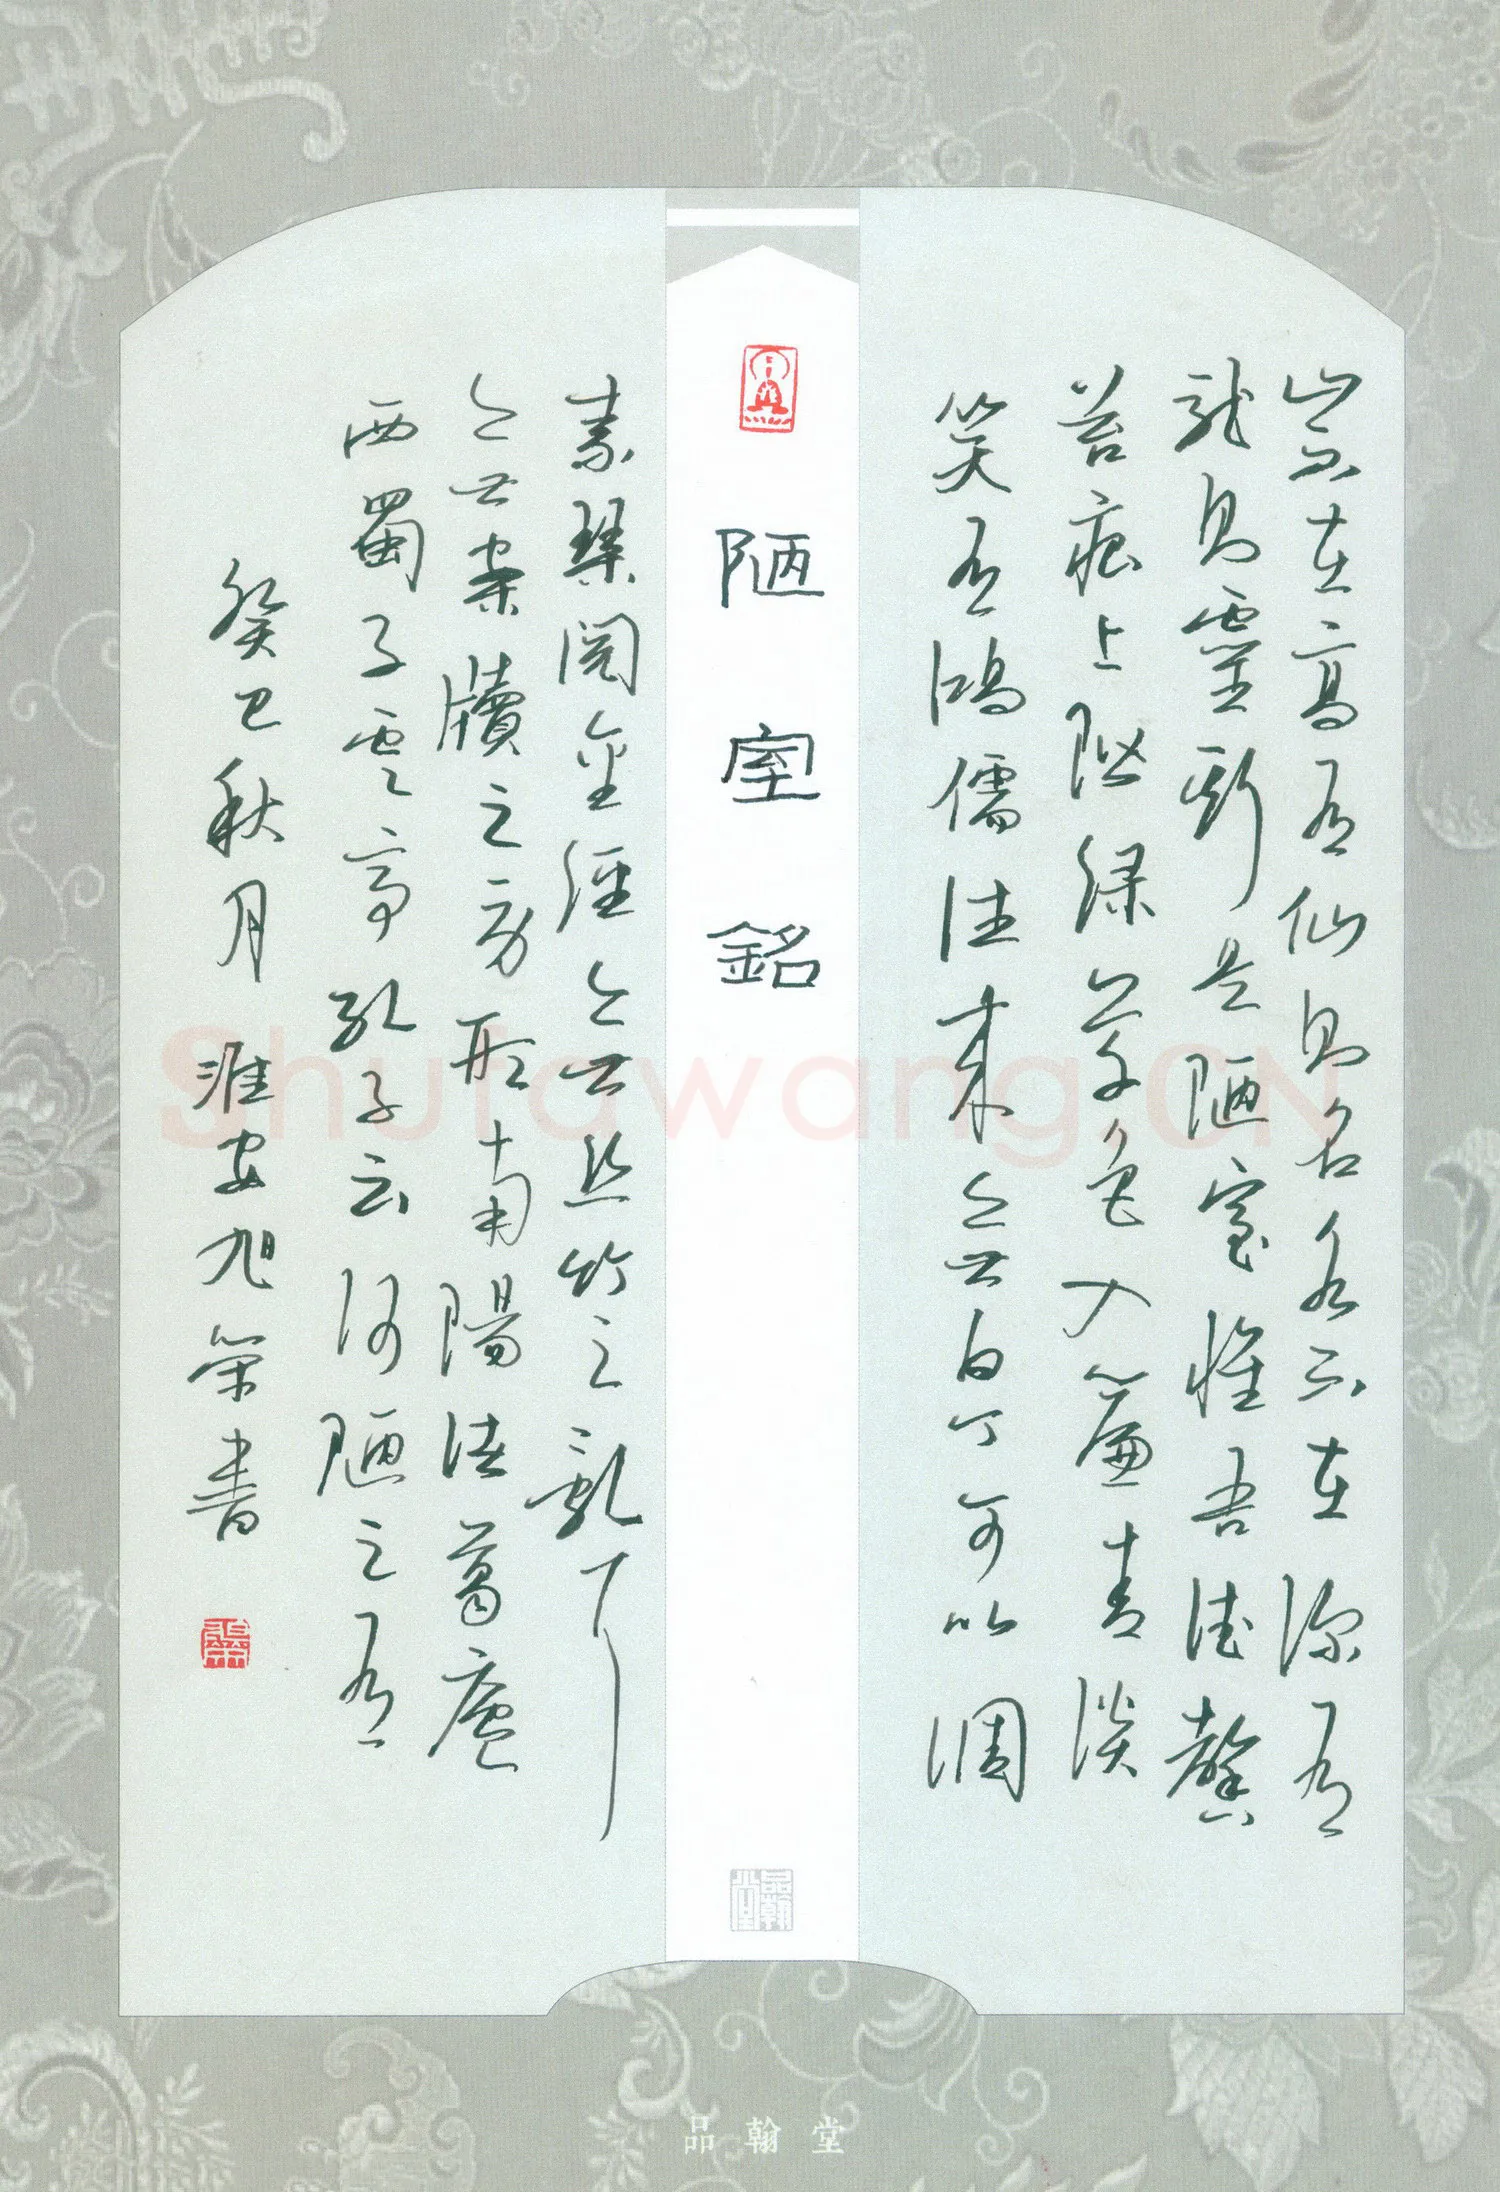 山不在高有仙則名水不在深有
龍則靈斯是陋室惟吾德馨
苔痕上階綠草色入簾青談
笑有鴻儒往來無白丁可以調
陋室銘
品翰堂
素琴閱金經無絲竹之亂耳
無案牘之勞形南陽諸葛廬
西蜀子雲亭孔子云何陋之有
癸巳秋月淮安旭榮書
Shufawang.CN
品翰堂